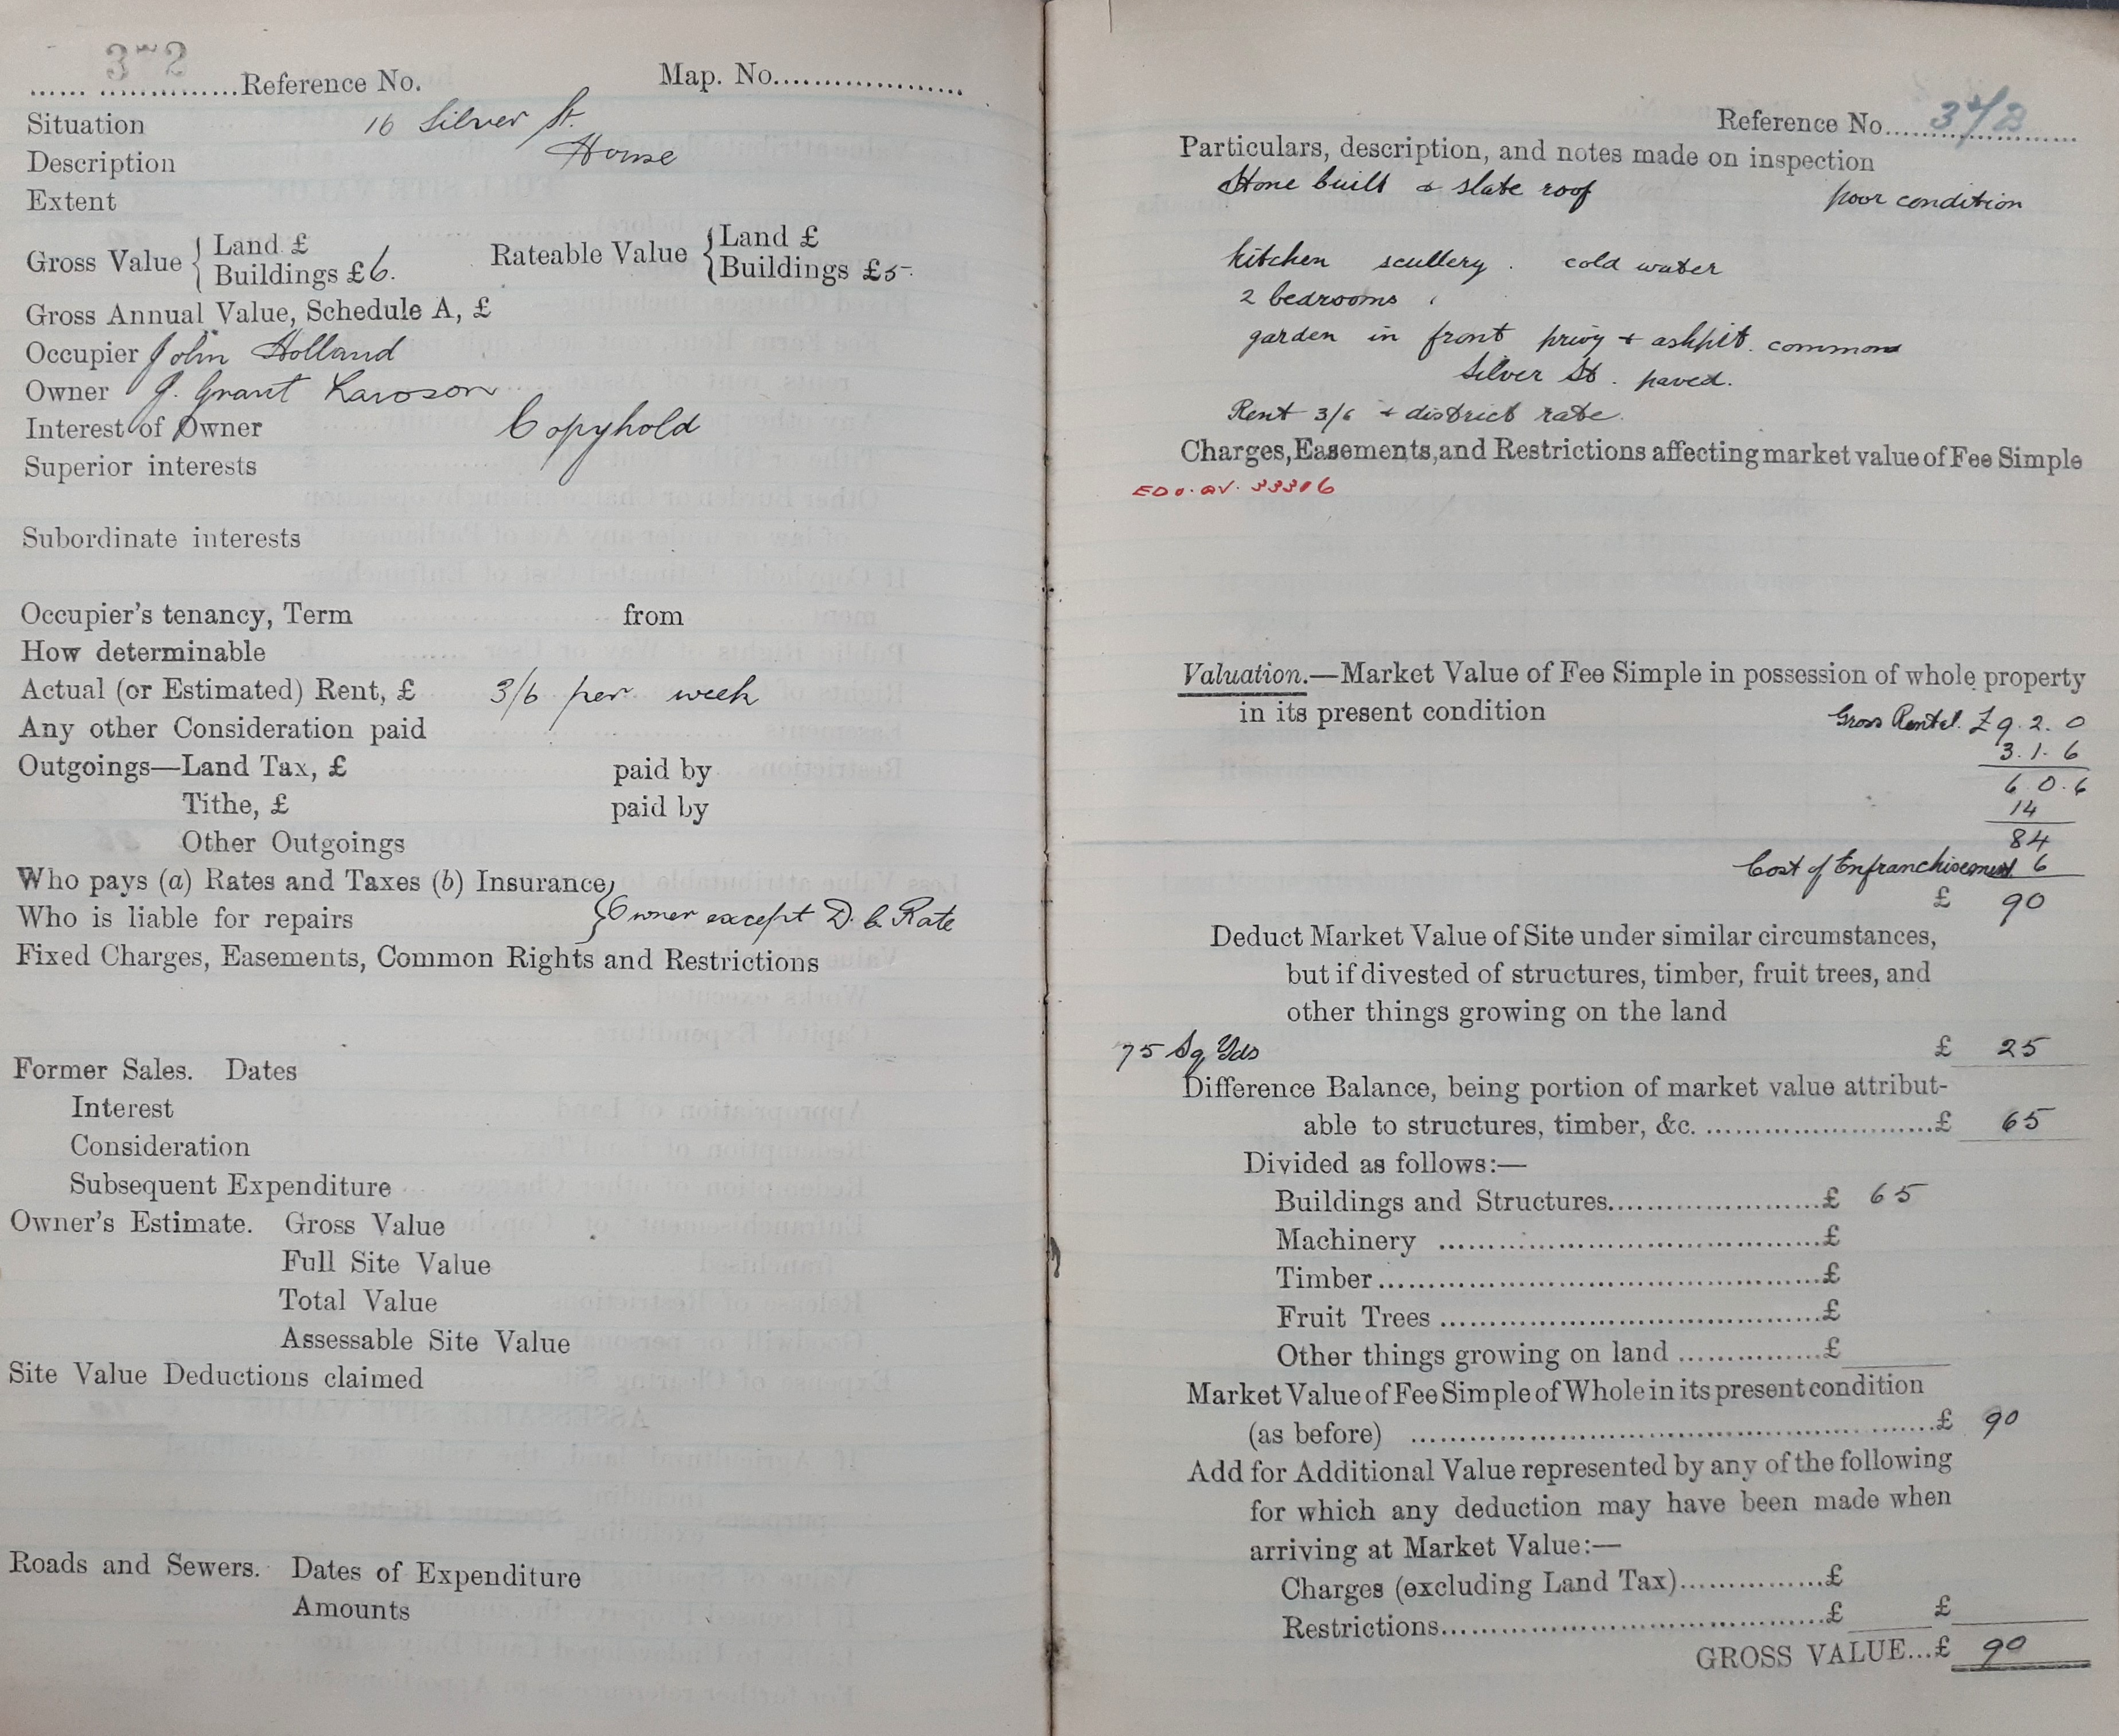 ...... ..............Reference No.
Map. No...................
Situation 16 Silver St.
Description House
Extent
Gross Value { Land £
Buildings £6.
Rateable Value { Land £
Buildings £5-.
Gross Annual Value, Schedule A, £
Occupier John Holland
Owner J. Grant Lawson
Interest of Owner Copyhold
Superior interests
Subordinate interests
Occupier's tenancy, Term from
How determinable
Actual (or Estimated) Rent, £ 3/6 per week
Any other Consideration paid
Outgoings—Land Tax, £ paid by
Tithe, £ paid by
Other Outgoings
Who pays (a) Rates and Taxes (b) Insurance
Who is liable for repairs } Owner except D. C. Rate
Fixed Charges, Easements, Common Rights and Restrictions
Former Sales. Dates
Interest
Consideration
Subsequent Expenditure
Owner's Estimate. Gross Value
Full Site Value
Total Value
Assessable Site Value
Site Value Deductions claimed
Roads and Sewers. Dates of Expenditure
Amounts
Reference No.
Particulars, description, and notes made on inspection
Stone built & slate roof poor condition
kitchen scullery . cold water
2 bedrooms
garden in front privy + ashpit. common
Silver St. paved.
Rent 3/6 + district rate.
Charges, Easements, and Restrictions affecting market value of Fee Simple
33306
Valuation.—Market Value of Fee Simple in possession of whole property
in its present condition Gross Rental. £9. 2. 0
3. 1. 6
6 0. 6
14
84
Cost of Enfranchisement 6
£ 90
Deduct Market Value of Site under similar circumstances,
but if divested of structures, timber, fruit trees, and
other things growing on the land
75 Sq Yds £ 25
Difference Balance, being portion of market value attribut-
able to structures, timber, &c. ..........................£ 65
Divided as follows:—
Buildings and Structures.......................£ 65
Machinery .........................................£
Timber...............................................£
Fruit Trees .........................................£
Other things growing on land ...............£
Market Value of Fee Simple of Whole in its present condition
(as before) .......................................................£ 90
Add for Additional Value represented by any of the following
for which any deduction may have been made when
arriving at Market Value:—
Charges (excluding Land Tax)...............£
Restrictions.........................................£ £
GROSS VALUE...£ 90